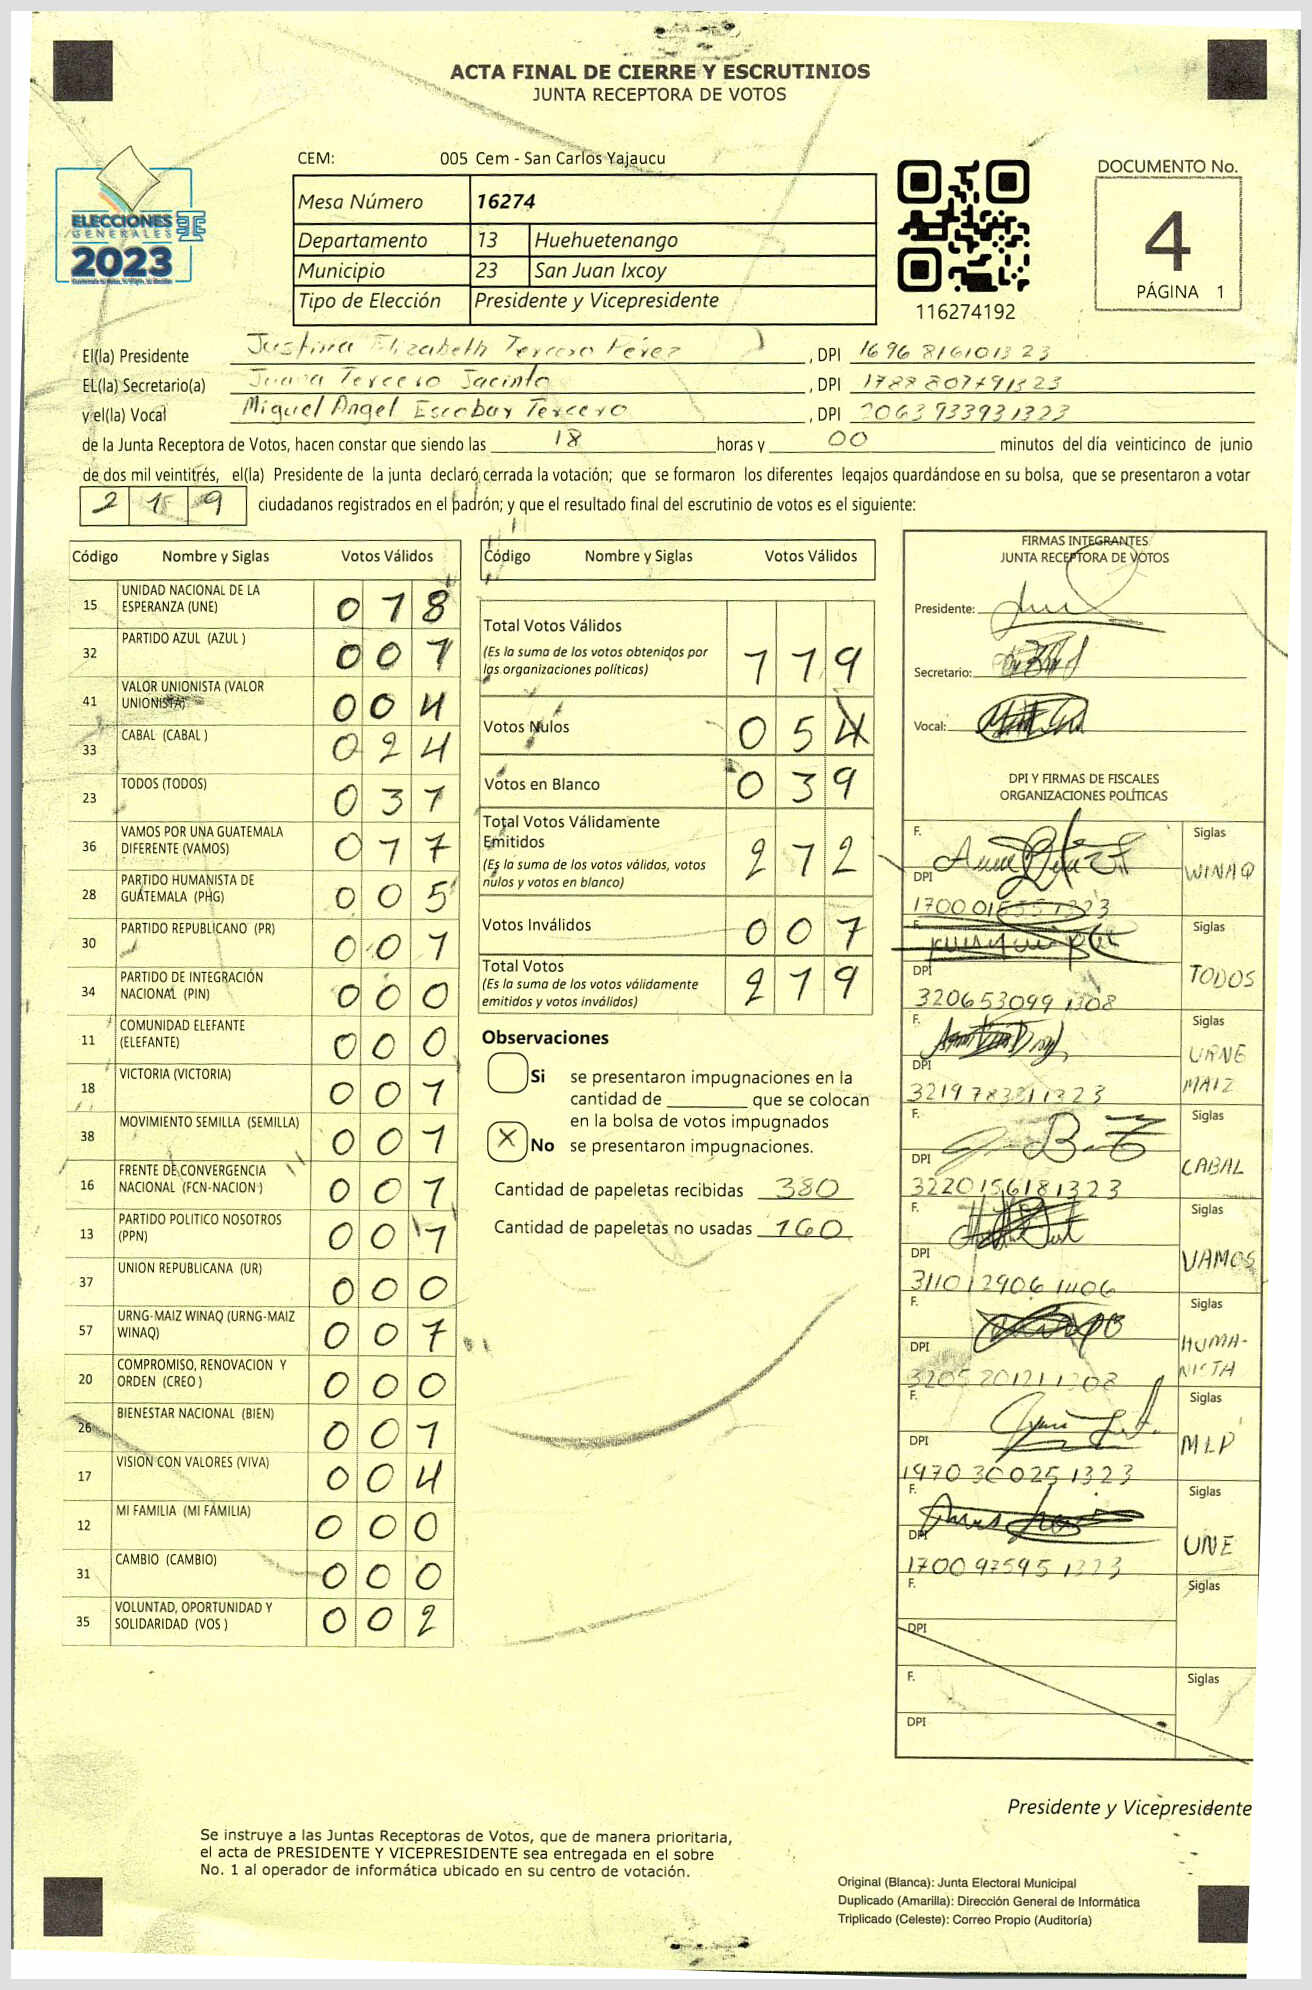 ACTA FINAL DE CIERRE Y ESCRUTINIOS
JUNTA RECEPTORA DE VOTOS
CEM: 005 Cem - San Carlos Yajaucu
ELECCIONES
GENERALES
2023
Mesa Número 16274
Departamento 13 Huehuetenango
Municipio 23 San Juan Ixcoy
Tipo de Elección Presidente y Vicepresidente
116274192
DOCUMENTO No.
4
PÁGINA 1
El(la) Presidente Justina Elizabeth Tercero Pérez, DPI 1696816101323
EL(la) Secretario(a) Juana Tercero Jacinto, DPI 1788807791323
y el(la) Vocal Miguel Angel Escobar Tercero, DPI 2063933931323
de la Junta Receptora de Votos, hacen constar que siendo las 18 horas y 00 minutos del día veinticinco de junio
de dos mil veintitrés, el(la) Presidente de la junta declaró cerrada la votación; que se formaron los diferentes legajos quardándose en su bolsa, que se presentaron a votar
2 1 9 ciudadanos registrados en el padrón; y que el resultado final del escrutinio de votos es el siguiente:
Código Nombre y Siglas Votos Válidos
15 UNIDAD NACIONAL DE LA ESPERANZA (UNE) 0 1 8
32 PARTIDO AZUL (AZUL ) 0 0 1
41 VALOR UNIONISTA (VALOR UNIONISTA) 0 0 4
33 CABAL (CABAL ) 0 2 4
23 TODOS (TODOS) 0 3 1
36 VAMOS POR UNA GUATEMALA DIFERENTE (VAMOS) 0 1 7
28 PARTIDO HUMANISTA DE GUATEMALA (PHG) 0 0 5
30 PARTIDO REPUBLICANO (PR) 0 0 1
34 PARTIDO DE INTEGRACIÓN NACIONAL (PIN) 0 0 0
11 COMUNIDAD ELEFANTE (ELEFANTE) 0 0 0
18 VICTORIA (VICTORIA) 0 0 1
38 MOVIMIENTO SEMILLA (SEMILLA) 0 0 1
16 FRENTE DE CONVERGENCIA NACIONAL (FCN-NACION ) 0 0 1
13 PARTIDO POLITICO NOSOTROS (PPN) 0 0 1
37 UNION REPUBLICANA (UR) 0 0 0
57 URNG-MAIZ WINAQ (URNG-MAIZ WINAQ) 0 0 7
20 COMPROMISO, RENOVACION Y ORDEN (CREO ) 0 0 0
26 BIENESTAR NACIONAL (BIEN) 0 0 1
17 VISION CON VALORES (VIVA) 0 0 4
12 MI FAMILIA (MI FAMILIA) 0 0 0
31 CAMBIO (CAMBIO) 0 0 0
35 VOLUNTAD, OPORTUNIDAD Y SOLIDARIDAD (VOS ) 0 0 2
Código Nombre y Siglas Votos Válidos
Total Votos Válidos
(Es la suma de los votos obtenidos por las organizaciones políticas) 1 1 9
Votos Nulos 0 5 4
Votos en Blanco 0 3 9
Total Votos Válidamente Emitidos
(Es la suma de los votos válidos, votos nulos y votos en blanco) 2 1 2
Votos Inválidos 0 0 7
Total Votos
(Es la suma de los votos válidamente emitidos y votos inválidos) 2 1 9
Observaciones
Si se presentaron impugnaciones en la
cantidad de ________ que se colocan
en la bolsa de votos impugnados
X No se presentaron impugnaciones.
Cantidad de papeletas recibidas 380
Cantidad de papeletas no usadas 160
FIRMAS INTEGRANTES
JUNTA RECEPTORA DE VOTOS
Presidente:
Secretario:
Vocal:
DPI Y FIRMAS DE FISCALES
ORGANIZACIONES POLÍTICAS
F. Siglas
DPI WINAQ
F. Siglas
DPI TODOS
3206530991308
F. Siglas
DPI URNE MAIZ
F. Siglas
DPI CABAL
3220156181323
F. Siglas
DPI VAMOS
3110129061406
F. Siglas
DPI HUMANISTA
3205201211308
F. Siglas
DPI MLP
1970300251323
F. Siglas
DPI UNE
1700975951323
F. Siglas
DPI
F. Siglas
DPI
Presidente y Vicepresidente
Se instruye a las Juntas Receptoras de Votos, que de manera prioritaria,
el acta de PRESIDENTE Y VICEPRESIDENTE sea entregada en el sobre
No. 1 al operador de informática ubicado en su centro de votación.
Original (Blanca): Junta Electoral Municipal
Duplicado (Amarilla): Dirección General de Informática
Triplicado (Celeste): Correo Propio (Auditoría)